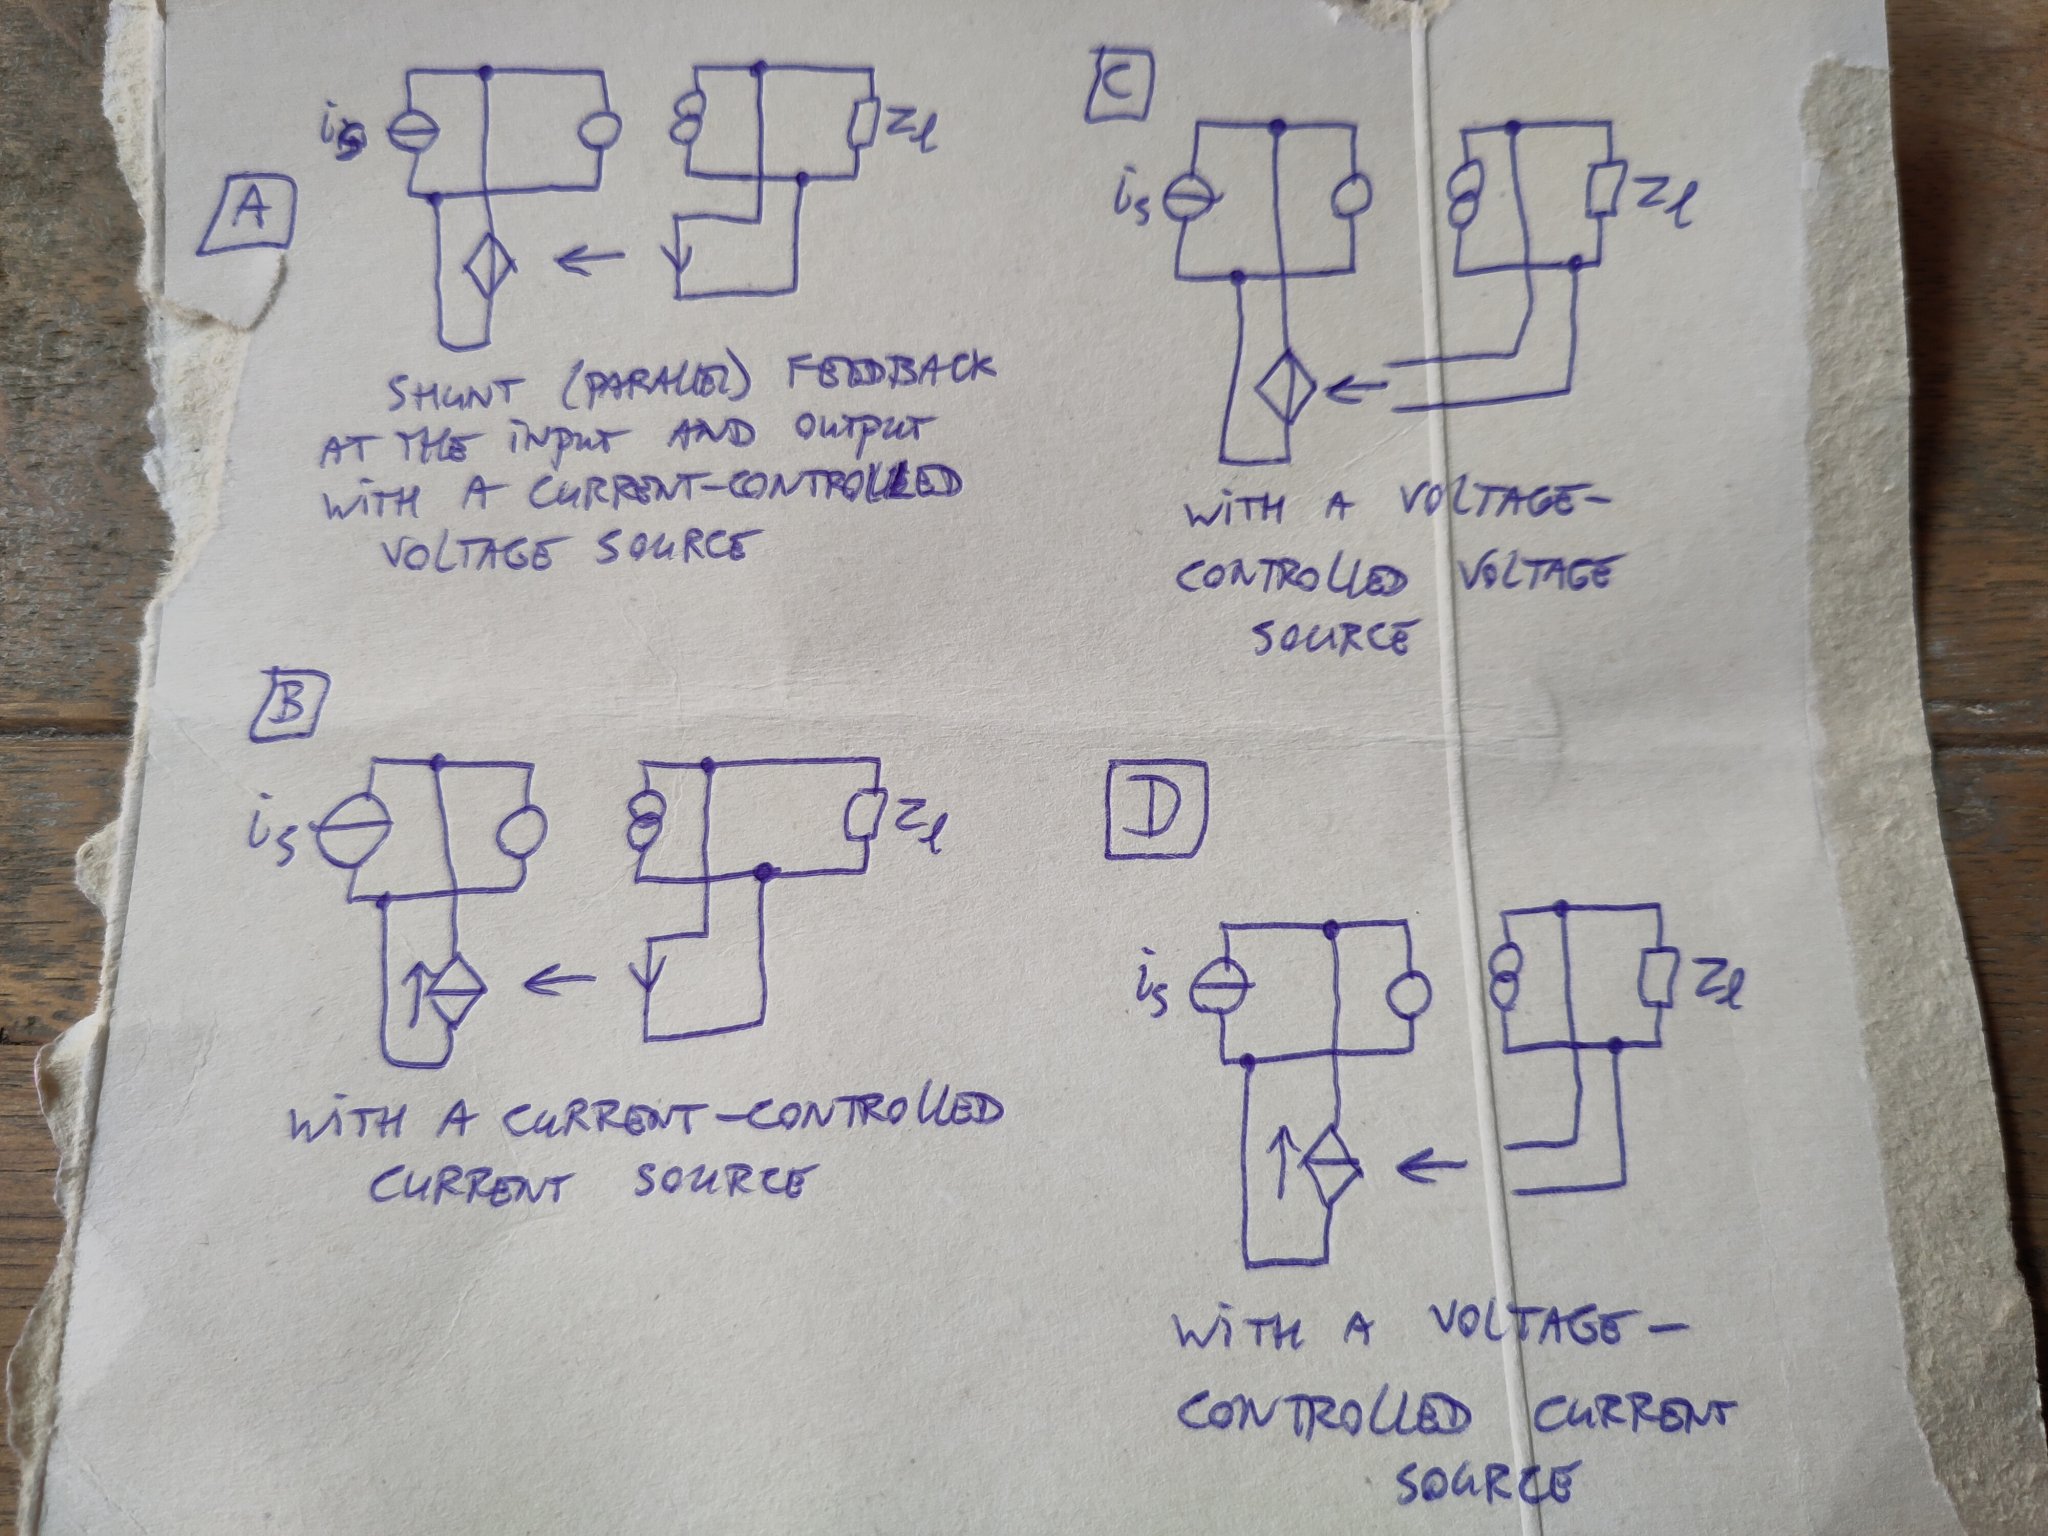 A
is
Zl
SHUNT (PARALLEL) FEEDBACK
AT THE INPUT AND OUTPUT
WITH A CURRENT-CONTROLLED
VOLTAGE SOURCE
B
is
Zl
WITH A CURRENT-CONTROLLED
CURRENT SOURCE
C
is
Zl
WITH A VOLTAGE-
CONTROLLED VOLTAGE
SOURCE
D
is
Zl
WITH A VOLTAGE-
CONTROLLED CURRENT
SOURCE